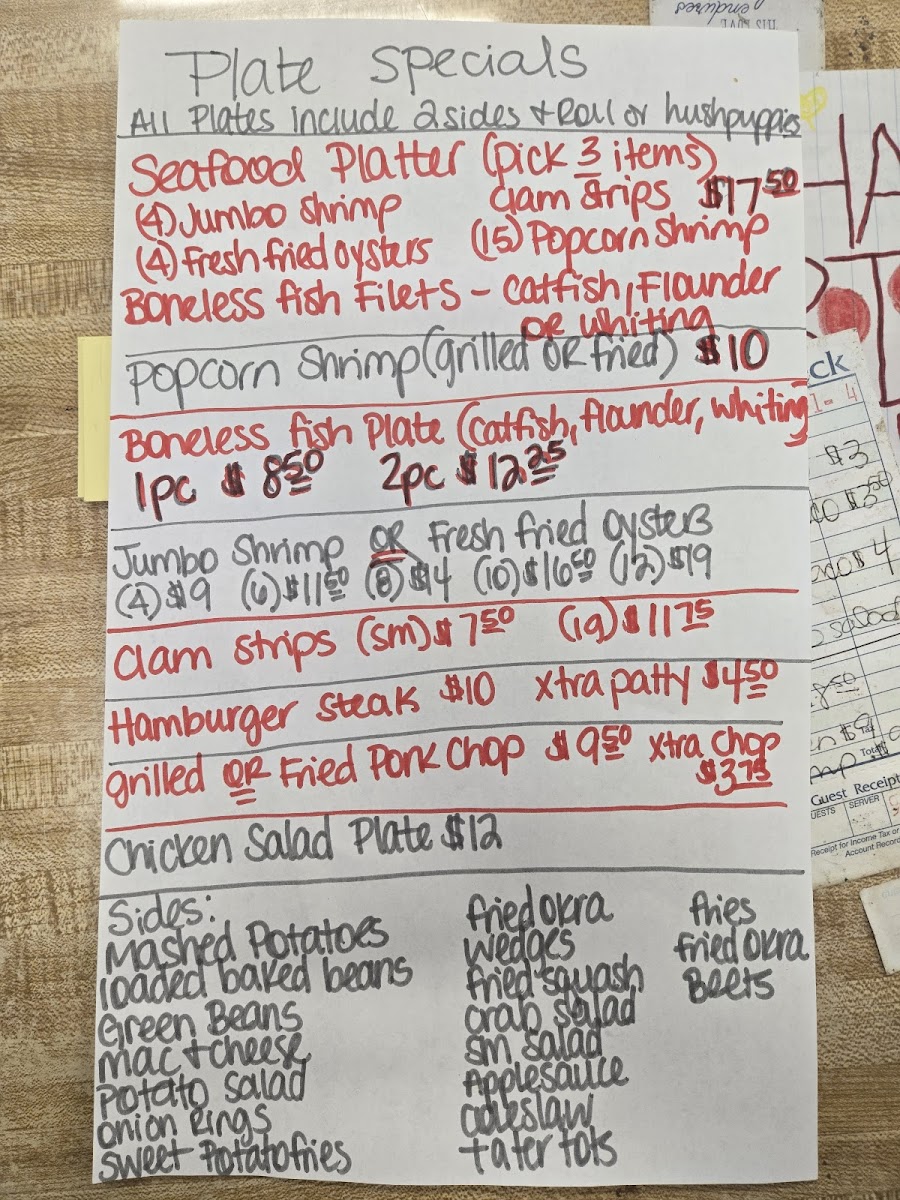 Plate Specials
All Plates include 2 sides + Roll or hushpuppies
Seafood Platter (pick 3 items)
(4) Jumbo Shrimp Clam Strips $17 50
(4) Fresh fried oysters (15) Popcorn Shrimp
Boneless fish Filets - Catfish, Flounder
or Whiting
Popcorn Shrimp (grilled OR fried) $10
Boneless fish Plate (Catfish, flounder, whiting
1pc $8 50 2pc $12 25
Jumbo Shrimp OR Fresh fried Oysters
(4) $9 (6) $11 50 (8) $14 (10) $16 50 (12) $19
Clam Strips (sm) $7 50 (lg) $11 75
Hamburger Steak $10 xtra patty $4 50
grilled OR Fried Pork Chop $9 50 xtra chop
$3 75
Chicken Salad Plate $12
Sides:
Mashed Potatoes
loaded baked beans
Green Beans
mac + cheese
Potato Salad
onion Rings
sweet Potato fries
fried okra
wedges
fried squash
crab salad
sm salad
Applesauce
coleslaw
tater tots
fries
fried okra
Beets
endures
HA
ck
$3
$4
salad
8 50
Tax
Total
Guest Receipt
UESTS SERVER
Receipt for Income Tax or
Account Record